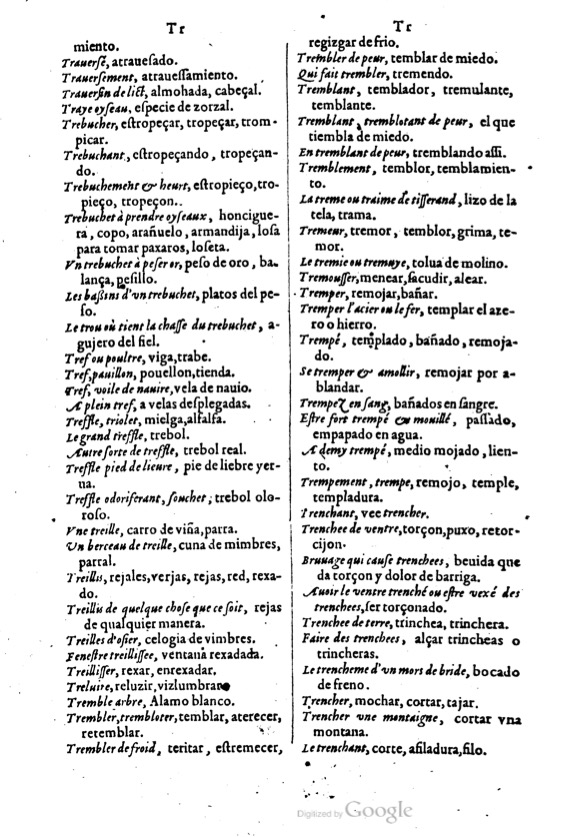 Tr
miento.
Trauersé, atrauesado.
Trauersement, atrauessamiento.
Trauersin de lict, almohada, cabeçal.
Traye oyseau, especie de zorzal.
Trebucher, estropeçar, tropeçar, trom-
picar.
Trebuchant, estropeçando, tropeçan-
do.
Trebuchement & heurt, estropieço, tro-
pieço, tropeçon..
Trebuchet à prendre oyseaux, honcigue-
ra, copo, arañuelo, armandija, losa
para tomar paxaros, loseta.
Vn trebuchet à peser or, peso de oro, ba-
lança, pesillo.
Les bassins d'vn trebuchet, platos del pe-
so.
Le trou où tient la chasse du trebuchet, a-
gujero del fiel.
Tref ou poultre, viga, trabe.
Tref, pauillon, pouellon, tienda.
Tref, voile de nauire, vela de nauio.
A plein tref, a velas desplegadas.
Treffle, triolet, mielga, alfalfa.
Le grand treffle, trebol.
Autre sorte de treffle, trebol real.
Treffle pied de lieure, pie de liebre yer-
ua.
Treffle odoriferant, souchet; trebol olo-
roso.
Vne treille, carro de viña, parra.
Vn berceau de treille, cuna de mimbres,
parral.
Treillis, rejales, verjas, rejas, red, rexa-
do.
Treillis de quelque chose que ce soit, rejas
de qualquier manera.
Treilles d'osier, celogia de vimbres.
Fenestre treillissee, ventana rexadada.
Treillisser, rexar, enrexadar.
Treluire, reluzir, vizlumbrar
Tremble arbre, Alamo blanco.
Trembler, trembloter, temblar, aterecer,
retemblar.
Trembler de froid, teritar, estremecer,
Tr
regizgar de frio.
Trembler de peur, temblar de miedo.
Qui fait trembler, tremendo.
Tremblant, temblador, tremulante,
temblante.
Tremblant, tremblotant de peur, el que
tiembla de miedo.
En tremblant de peur, tremblando assi.
Tremblement, temblor, temblamien-
to.
La treme ou traime de tisserand, lizo de la
tela, trama.
Tremeur, tremor, temblor, grima, te-
mor.
Le tremie ou tremuye, tolua de molino.
Tremousser, menear, sacudir, alear.
Tremper, remojar, bañar.
Tremper l'acier ou le fer, templar el aze-
ro o hierro.
Trempé, templado, bañado, remoja-
do.
Se tremper & amollir, remojar por a-
blandar.
Trempez en sang, bañados en sangre.
Estre fort trempé & mouillé, passado,
empapado en agua.
A demy trempé, medio mojado, lien-
to.
Trempement, trempe, remojo, temple,
templadura.
Trenchant, vee trencher.
Trenchee de ventre, torçon, puxo, retor-
cijon.
Bruuage qui cause trenchees, beuida que
da torçon y dolor de barriga.
Auoir le ventre trenché ou estre vexé des
trenchees, ser torçonado.
Trenchee de terre, trinchea, trinchera.
Faire des trenchees, alçar trincheas o
trincheras.
Le trencheme d'vn mors de bride, bocado
de freno.
Trencher, mochar, cortar, tajar.
Trencher vne montaigne, cortar vna
montana.
Le trenchant, corte, afiladura, filo.
Digitized by Google